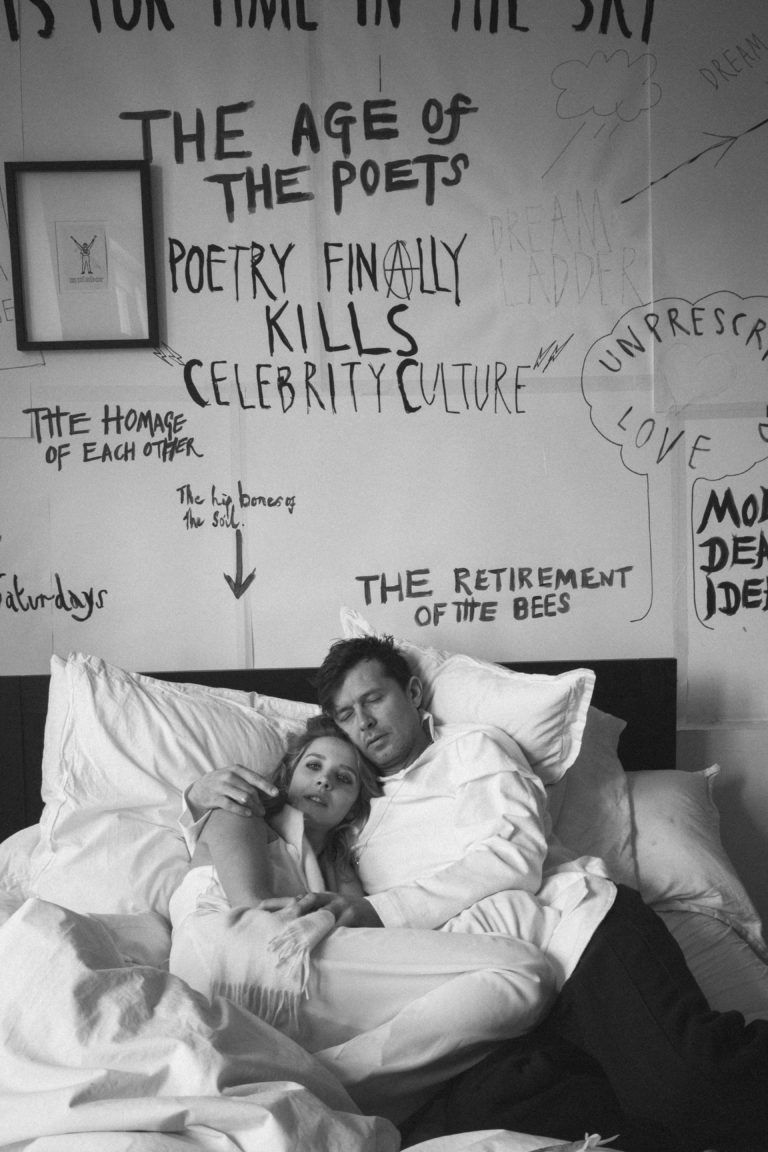 IS FOR TIME IN THE SKY
DREAM
THE AGE OF
THE POETS
DREAM
LADDER
POETRY FINALLY
KILLS
CELEBRITY CULTURE
UNPRESCRI
LOVE
THE HOMAGE
OF EACH OTHER
The hip bones of
the soil.
Saturdays
THE RETIREMENT
OF THE BEES
MOD
DEA
IDE